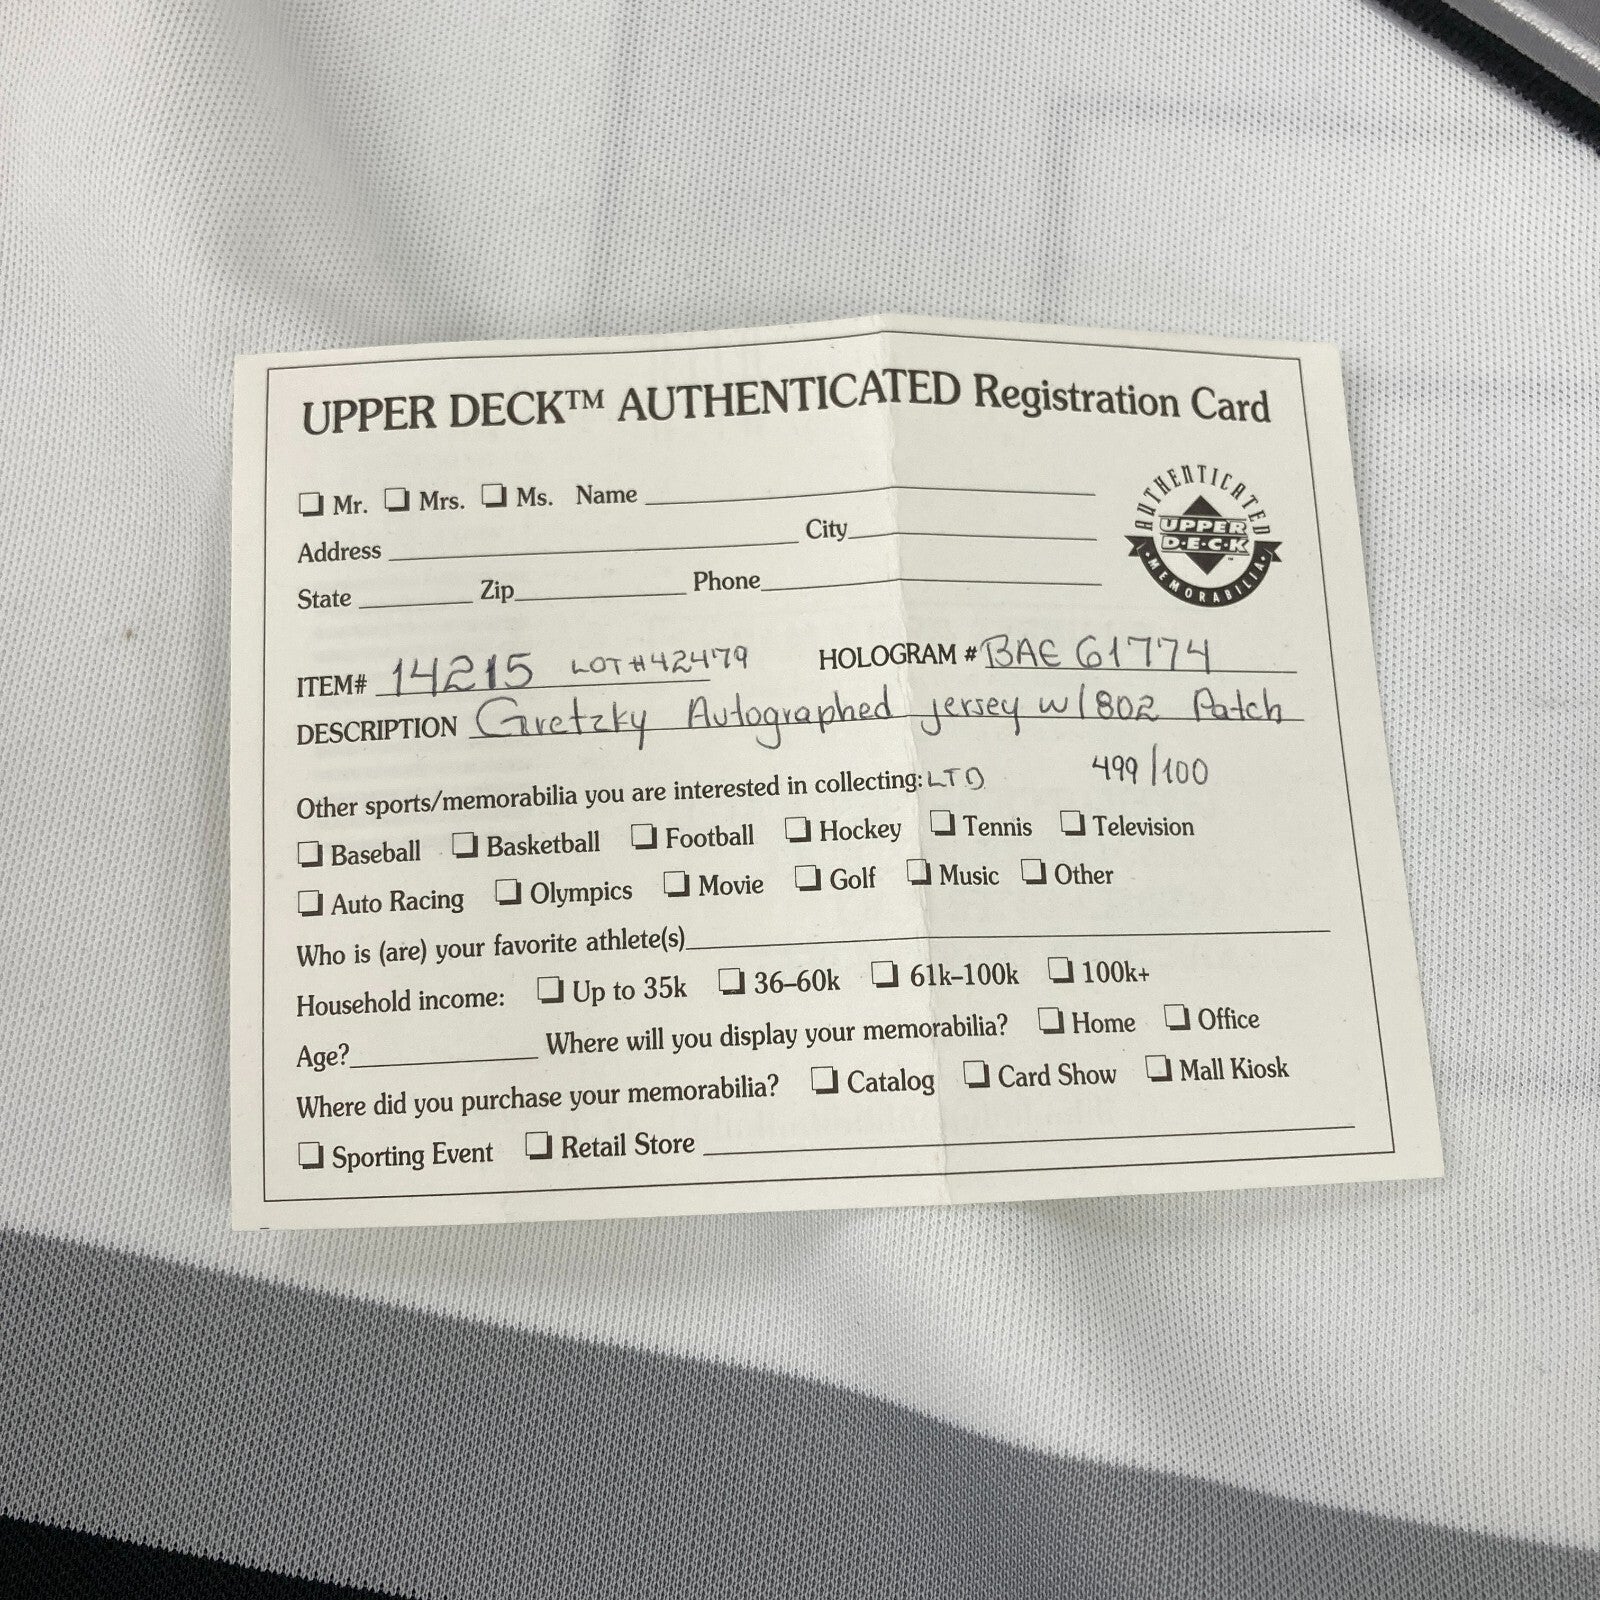 UPPER DECK™ AUTHENTICATED Registration Card
❏ Mr. ❏ Mrs. ❏ Ms. Name
Address City
State Zip Phone
AUTHENTICATED
UPPER
D·E·C·K
MEMORABILIA
ITEM# 14215 LOT#42479 HOLOGRAM # BAE 61774
DESCRIPTION Gretzky Autographed jersey w/802 Patch
Other sports/memorabilia you are interested in collecting: LTD 499/100
❏ Baseball ❏ Basketball ❏ Football ❏ Hockey ❏ Tennis ❏ Television
❏ Auto Racing ❏ Olympics ❏ Movie ❏ Golf ❏ Music ❏ Other
Who is (are) your favorite athlete(s)
Household income: ❏ Up to 35k ❏ 36–60k ❏ 61k–100k ❏ 100k+
Age? Where will you display your memorabilia? ❏ Home ❏ Office
Where did you purchase your memorabilia? ❏ Catalog ❏ Card Show ❏ Mall Kiosk
❏ Sporting Event ❏ Retail Store